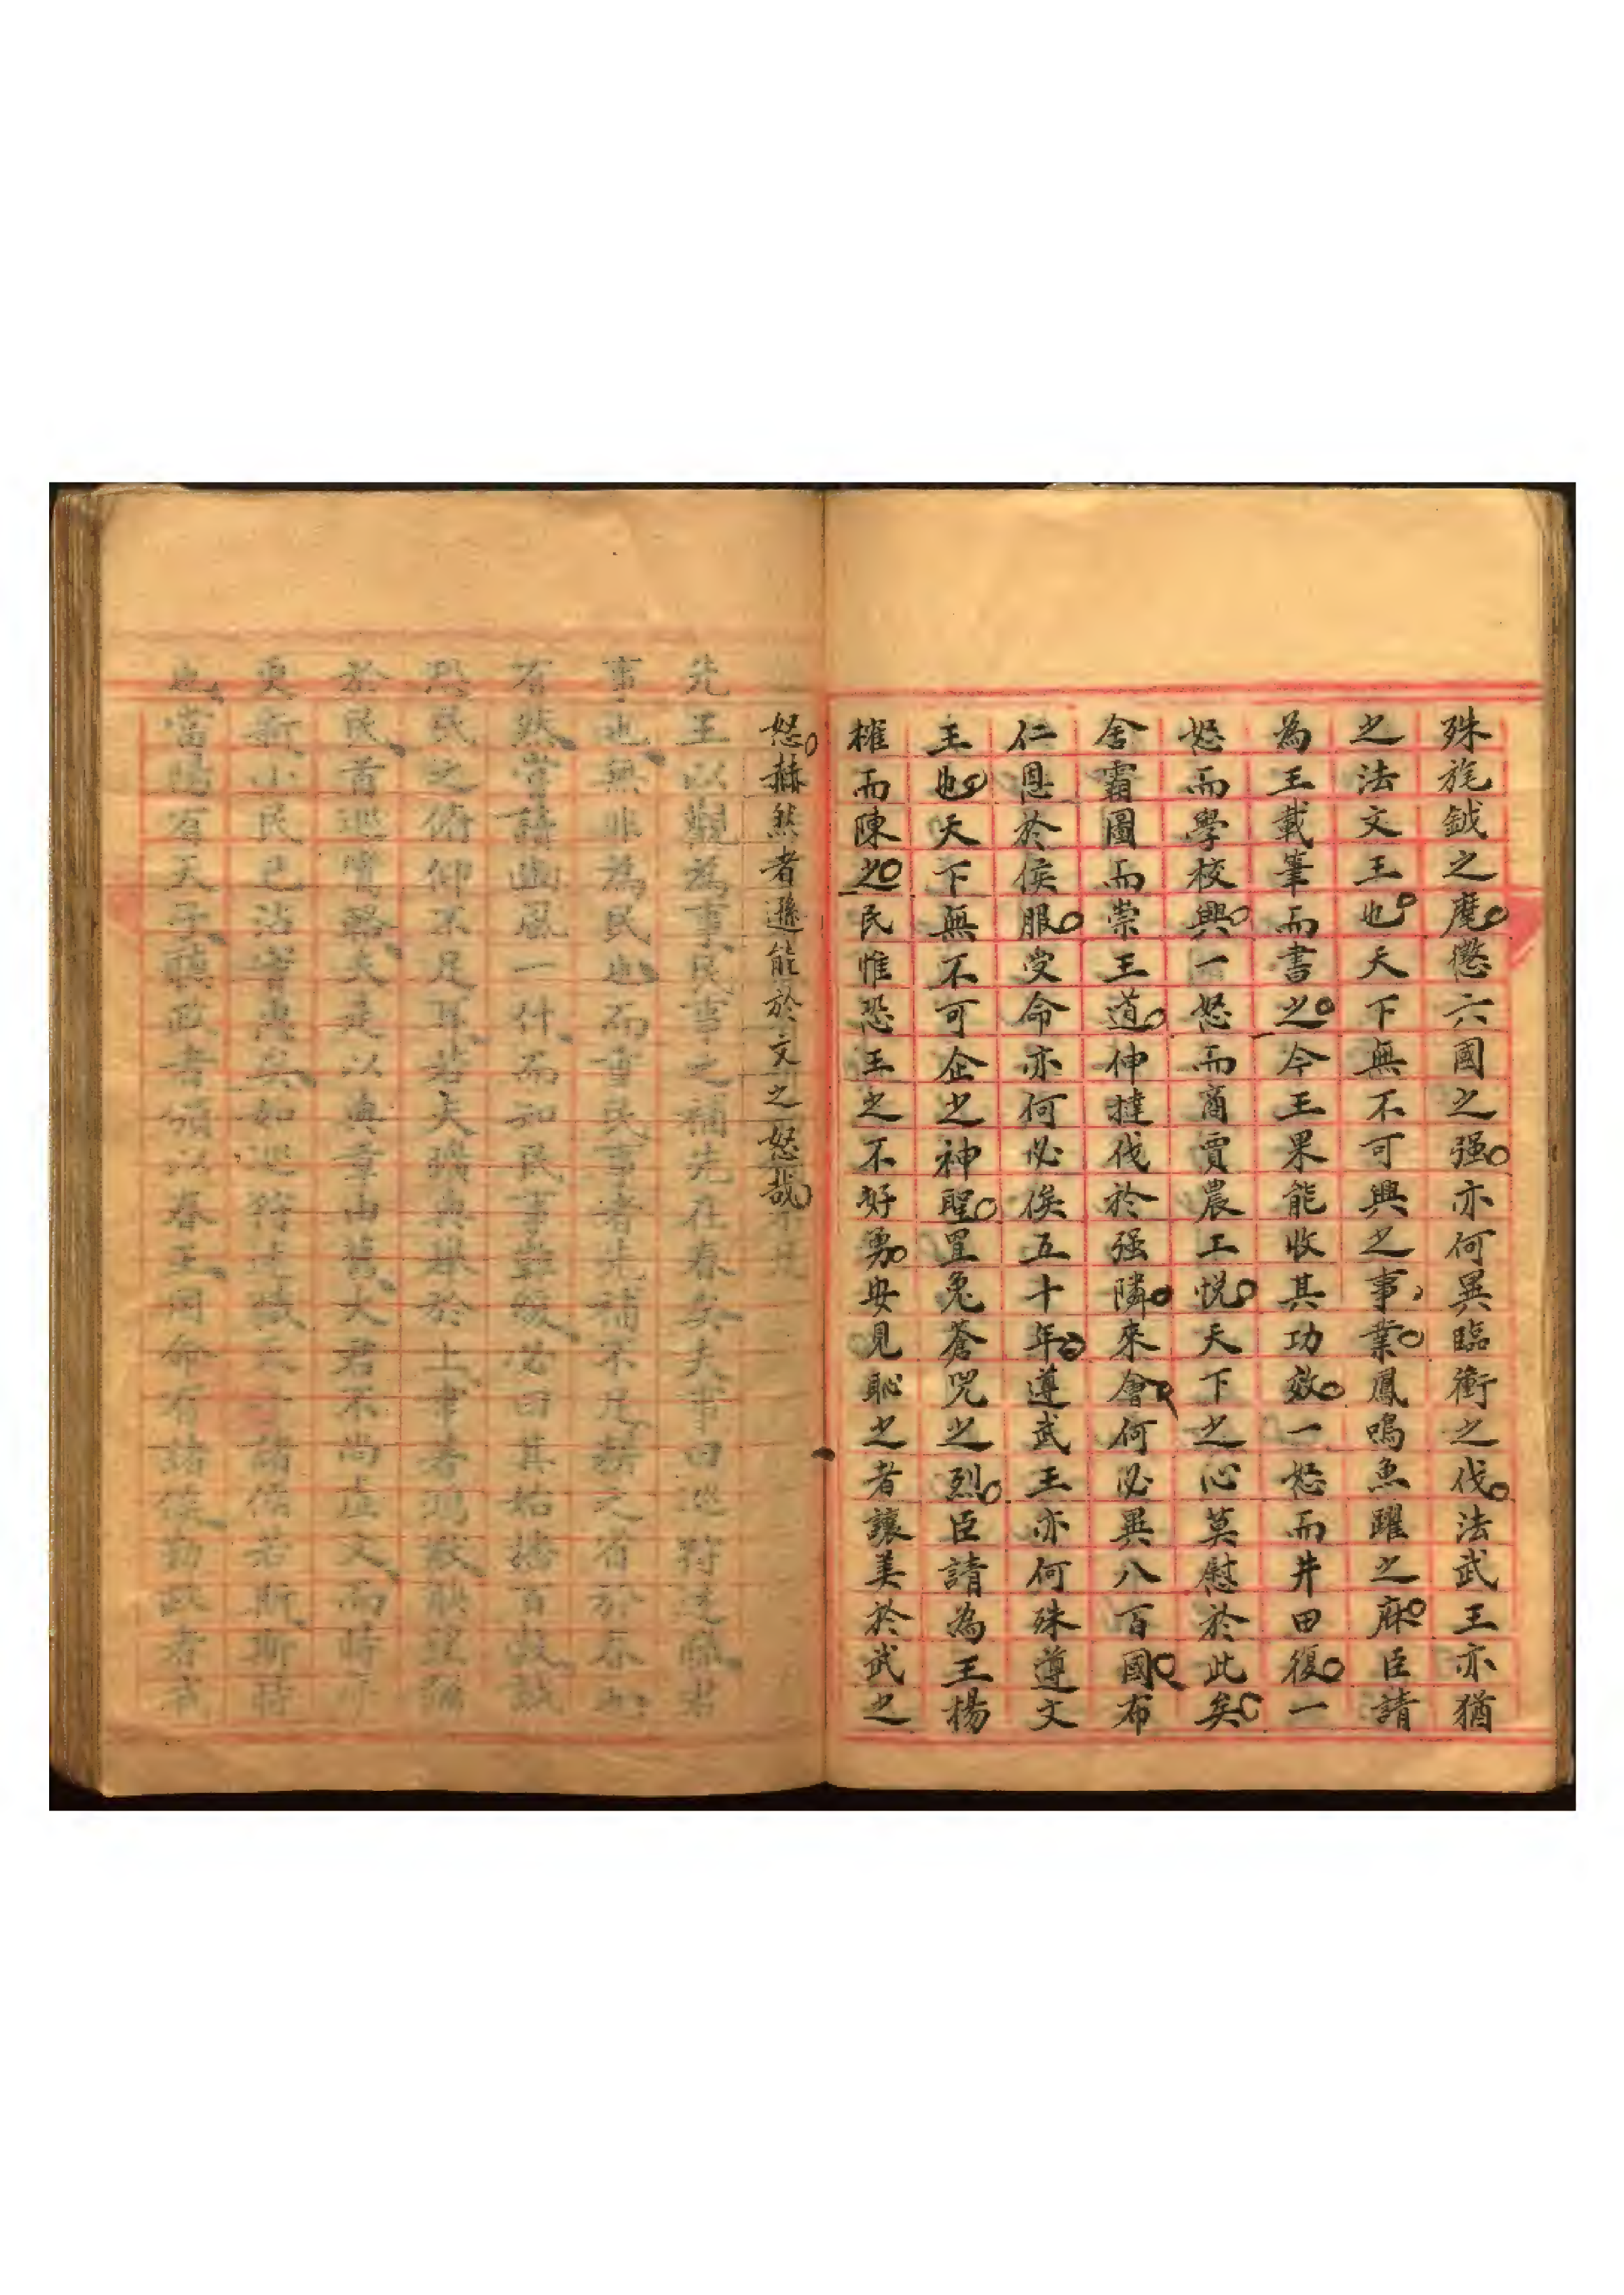 殊旄鉞之麾懲六國之强亦何異臨衝之伐法武王亦猶
之法文王也天下無不可興之事業鳳鳴魚躍之庥臣請
為王載筆而書之今王果能收其功效一怒而井田復一
怒而學校興一怒而商賈農工悅天下之心莫慰於此矣
舍霸圖而崇王道伸撻伐於强隣來會何必異八百國布
仁恩於侯服受命亦何必俟五十年遵武王亦何殊遵文
王也天下無不可企之神聖罝兔蒼兕之烈臣請為王揚
榷而陳之民惟恐王之不好勇安見恥之者讓美於武之
怒赫然者遜能於文之怒哉
先王以觀為事民事之補先在春矣夫事曰巡狩述職君
事也無非為民也而重民事者先補不足耕之省於春也
有然嘗讀豳風一什而知民事難緩必曰其始播百穀誠
民之俯仰不足耳若夫曠典舉於上
於民首巡鸞輅夫是以典章由舊大君不尚虛文而時
更新小民已沾實惠矣如巡狩述職諸侯若斯斯時
也當時有天子聽政者頒以春王同命有諸侯勤政者省